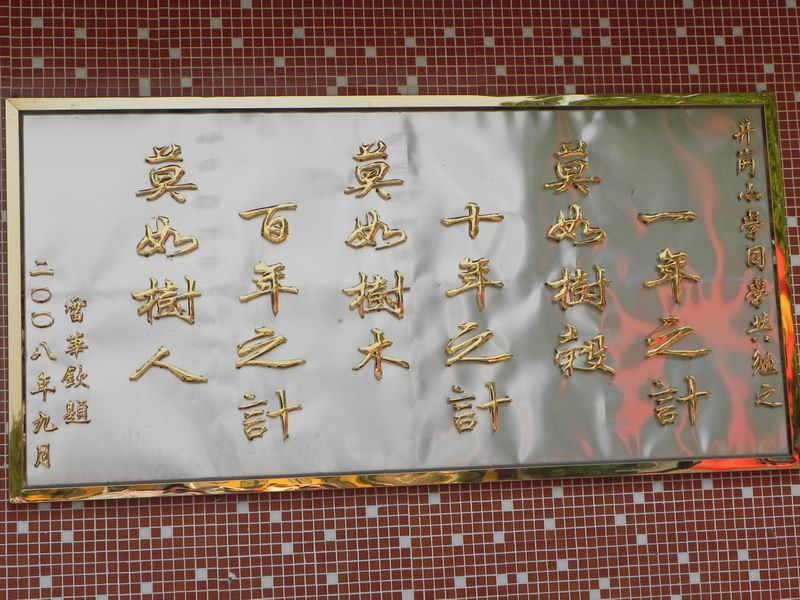 井岗小学同夢共勉之
一年之計
莫如樹穀
十年之計
莫如樹木
百年之計
莫如樹人
雷華欽題
二〇〇八年九月